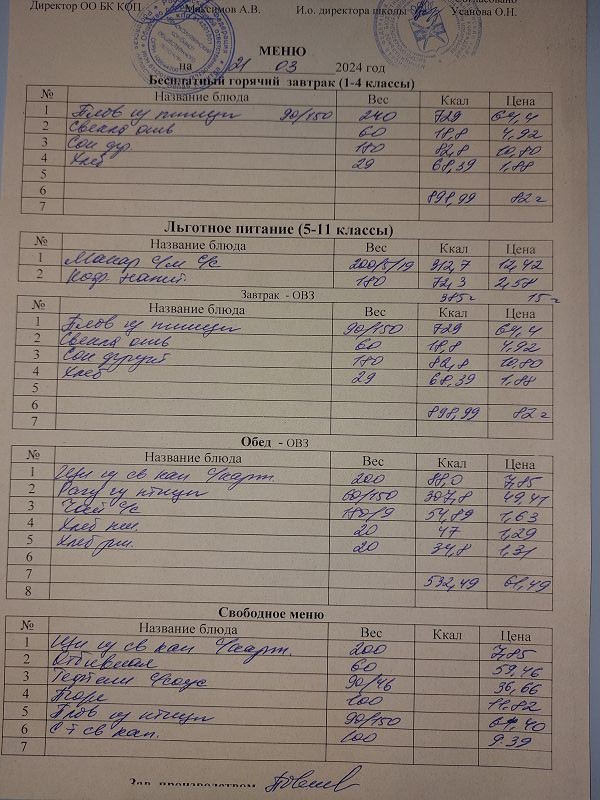 Директор ОО БК КОП Максимов А.В. И.о. директора школы Усанова О.Н.
МЕНЮ
на 21 03 2024 год
Бесплатный горячий завтрак (1-4 классы)
№ Название блюда Вес Ккал Цена
1 Плов из птицы 90/150 240 729 64,4
2 Свекла отв 60 18,8 4,92
3 Сок фр. 180 82,8 10,80
4 Хлеб 29 68,39 1,88
5
6 898,99 82=
7
Льготное питание (5-11 классы)
№ Название блюда Вес Ккал Цена
1 Макар с/м с/с 200/5/19 312,7 12,42
2 Коф. напит. 180 72,3 2,58
385= 15=
Завтрак - ОВЗ
1 Плов из птицы 90/150 729 64,4
2 Свекла отв 60 18,8 4,92
3 Сок 180 82,8 10,80
4 Хлеб 29 68,39 1,88
5
6 898,99 82=
7
Обед - ОВЗ
№ Название блюда Вес Ккал Цена
1 Щи из св кап с/карт. 200 88,0 7,85
2 Рагу из птицы 60/150 307,8 49,41
3 Чай с/с 180/9 54,89 1,63
4 Хлеб пш. 20 47 1,29
5 Хлеб рж. 20 34,8 1,31
6
7 532,49 61,49
8
Свободное меню
№ Название блюда Вес Ккал Цена
1 Щи из св кап с/карт. 200 7,85
2 Отбивная 60 59,46
3 Тефтели с/соус 90/46 36,66
4 Пюре 100 11,82
5 Плов из птицы 90/150 64,40
6 С-т св кап. 100 9.39
7
Зав. производством